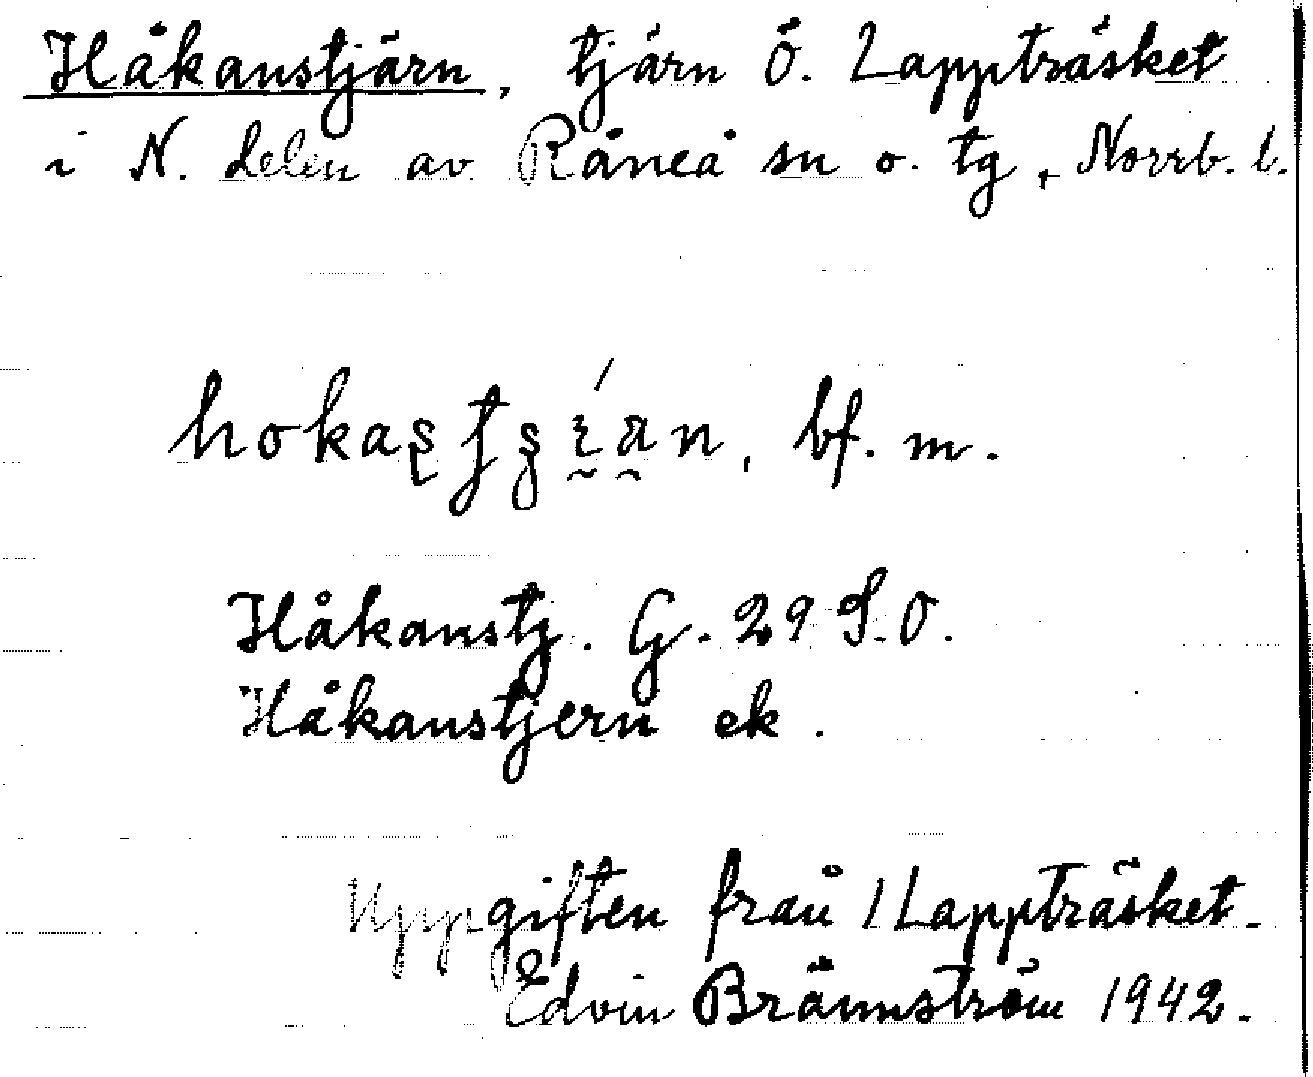 Håkanstjärn, tjärn Ö. Lappträsket
i N. delen av Råneå sn o. tg, Norrb. l.
bf. m.
Håkanstj. G. 29 S.O.
Håkanstjern ek.
Uppgiften från Lappträsket.
Edvin Brännström 1942.